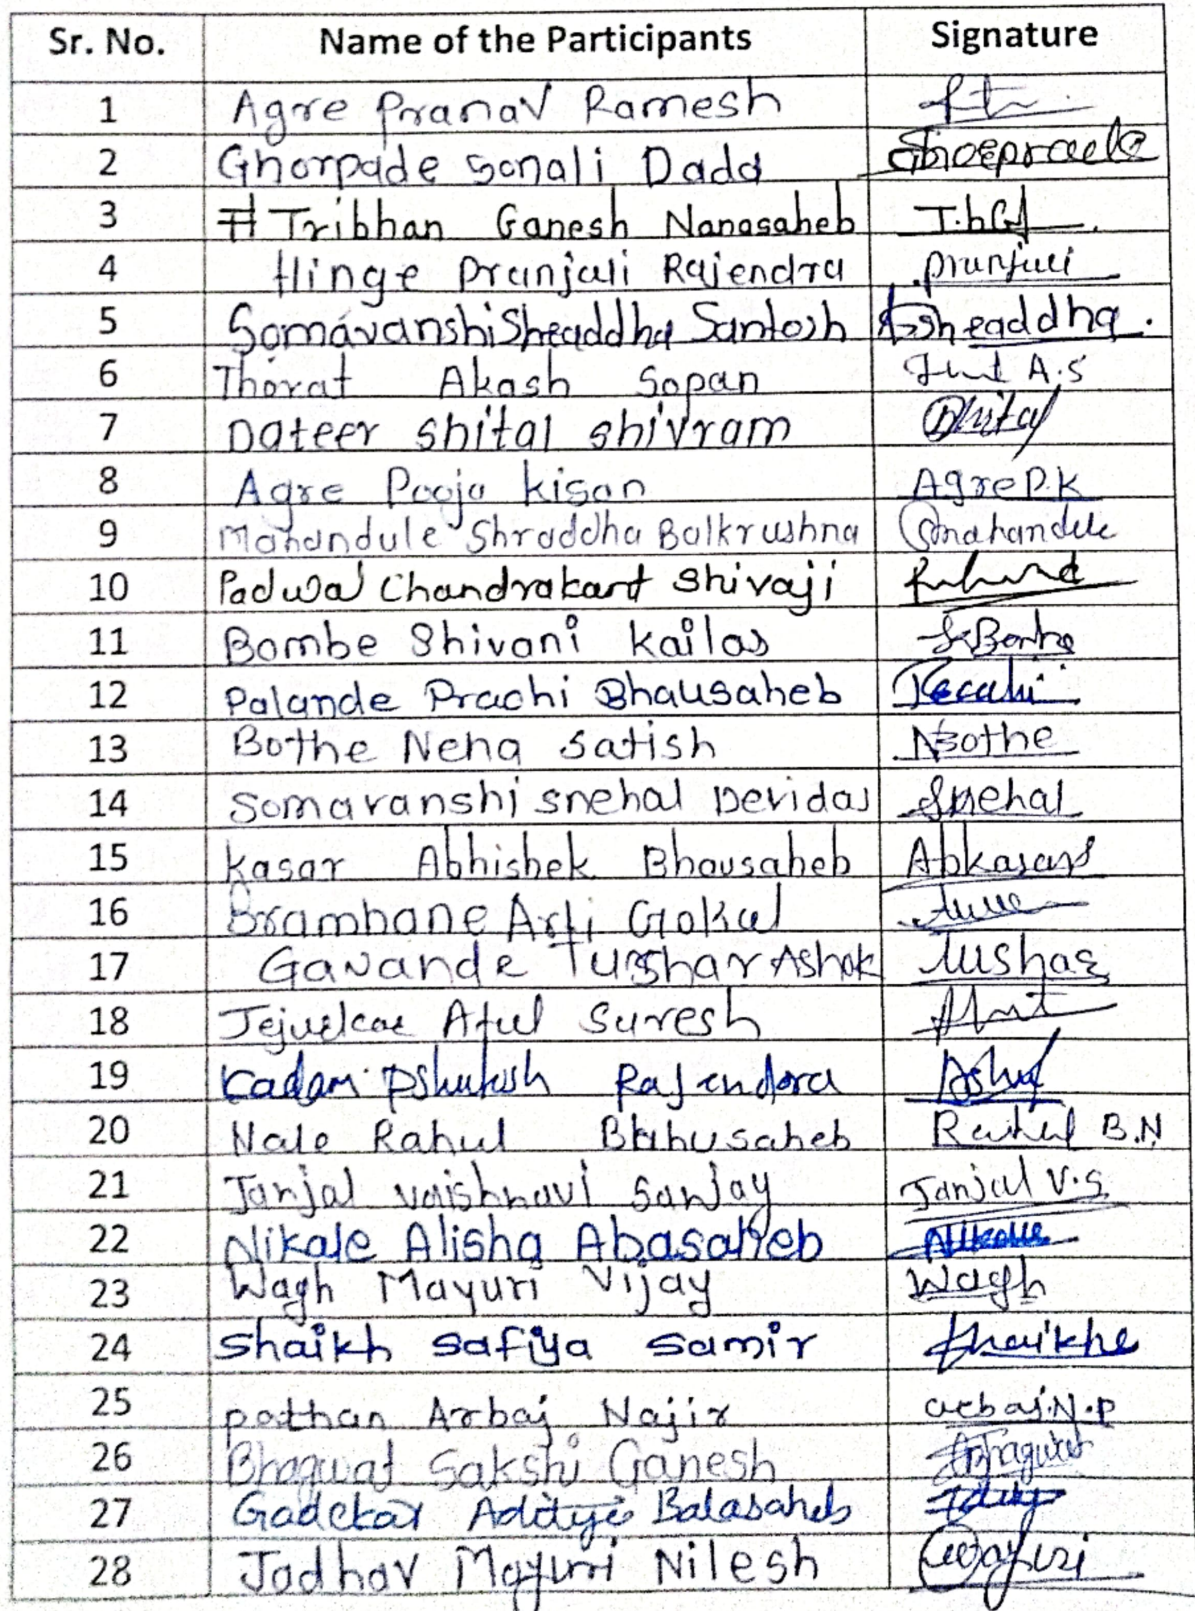 Sr. No. Name of the Participants Signature
1 Agre Pranav Ramesh
2 Ghorpade Sonali Dada Ghorpade
3 # Tribhan Ganesh Nanasaheb
4 Hinge Pranjali Rajendra Pranjali
5 Somavanshi Shraddha Santosh Shraddha.
6 Thorat Akash Sopan A.S
7 Dateer Shital Shivram Shital
8 Agre Pooja Kisan Agre P.K
9 Mahandule Shraddha Balkrushna Mahandule
10 Padwal Chandrakant Shivaji
11 Bombe Shivani Kailas S.Bombe
12 Palande Prachi Bhausaheb Prachi
13 Bothe Neha Satish NBothe
14 Somavanshi Snehal Devidas Snehal
15 Kasar Abhishek Bhausaheb Abkasar
16 Bramhane Arti Gokul
17 Gavande Tushar Ashok Tushar
18 Jejurkar Atul Suresh
19 Kadam Rajendra
20 Nale Rahul Bhausaheb Rahul B.N
21 Janjal Vaishnavi Sanjay Janjal V.S.
22 Nikale Alisha Abasaheb
23 Wagh Mayuri Vijay Wagh
24 Shaikh Safiya Samir
25 Pathan Arbaj Najir arbaj.N.P
26 Bhagwat Sakshi Ganesh Bhagwat
27 Gadekar Balasaheb
28 Jadhav Mayuri Nilesh Mayuri